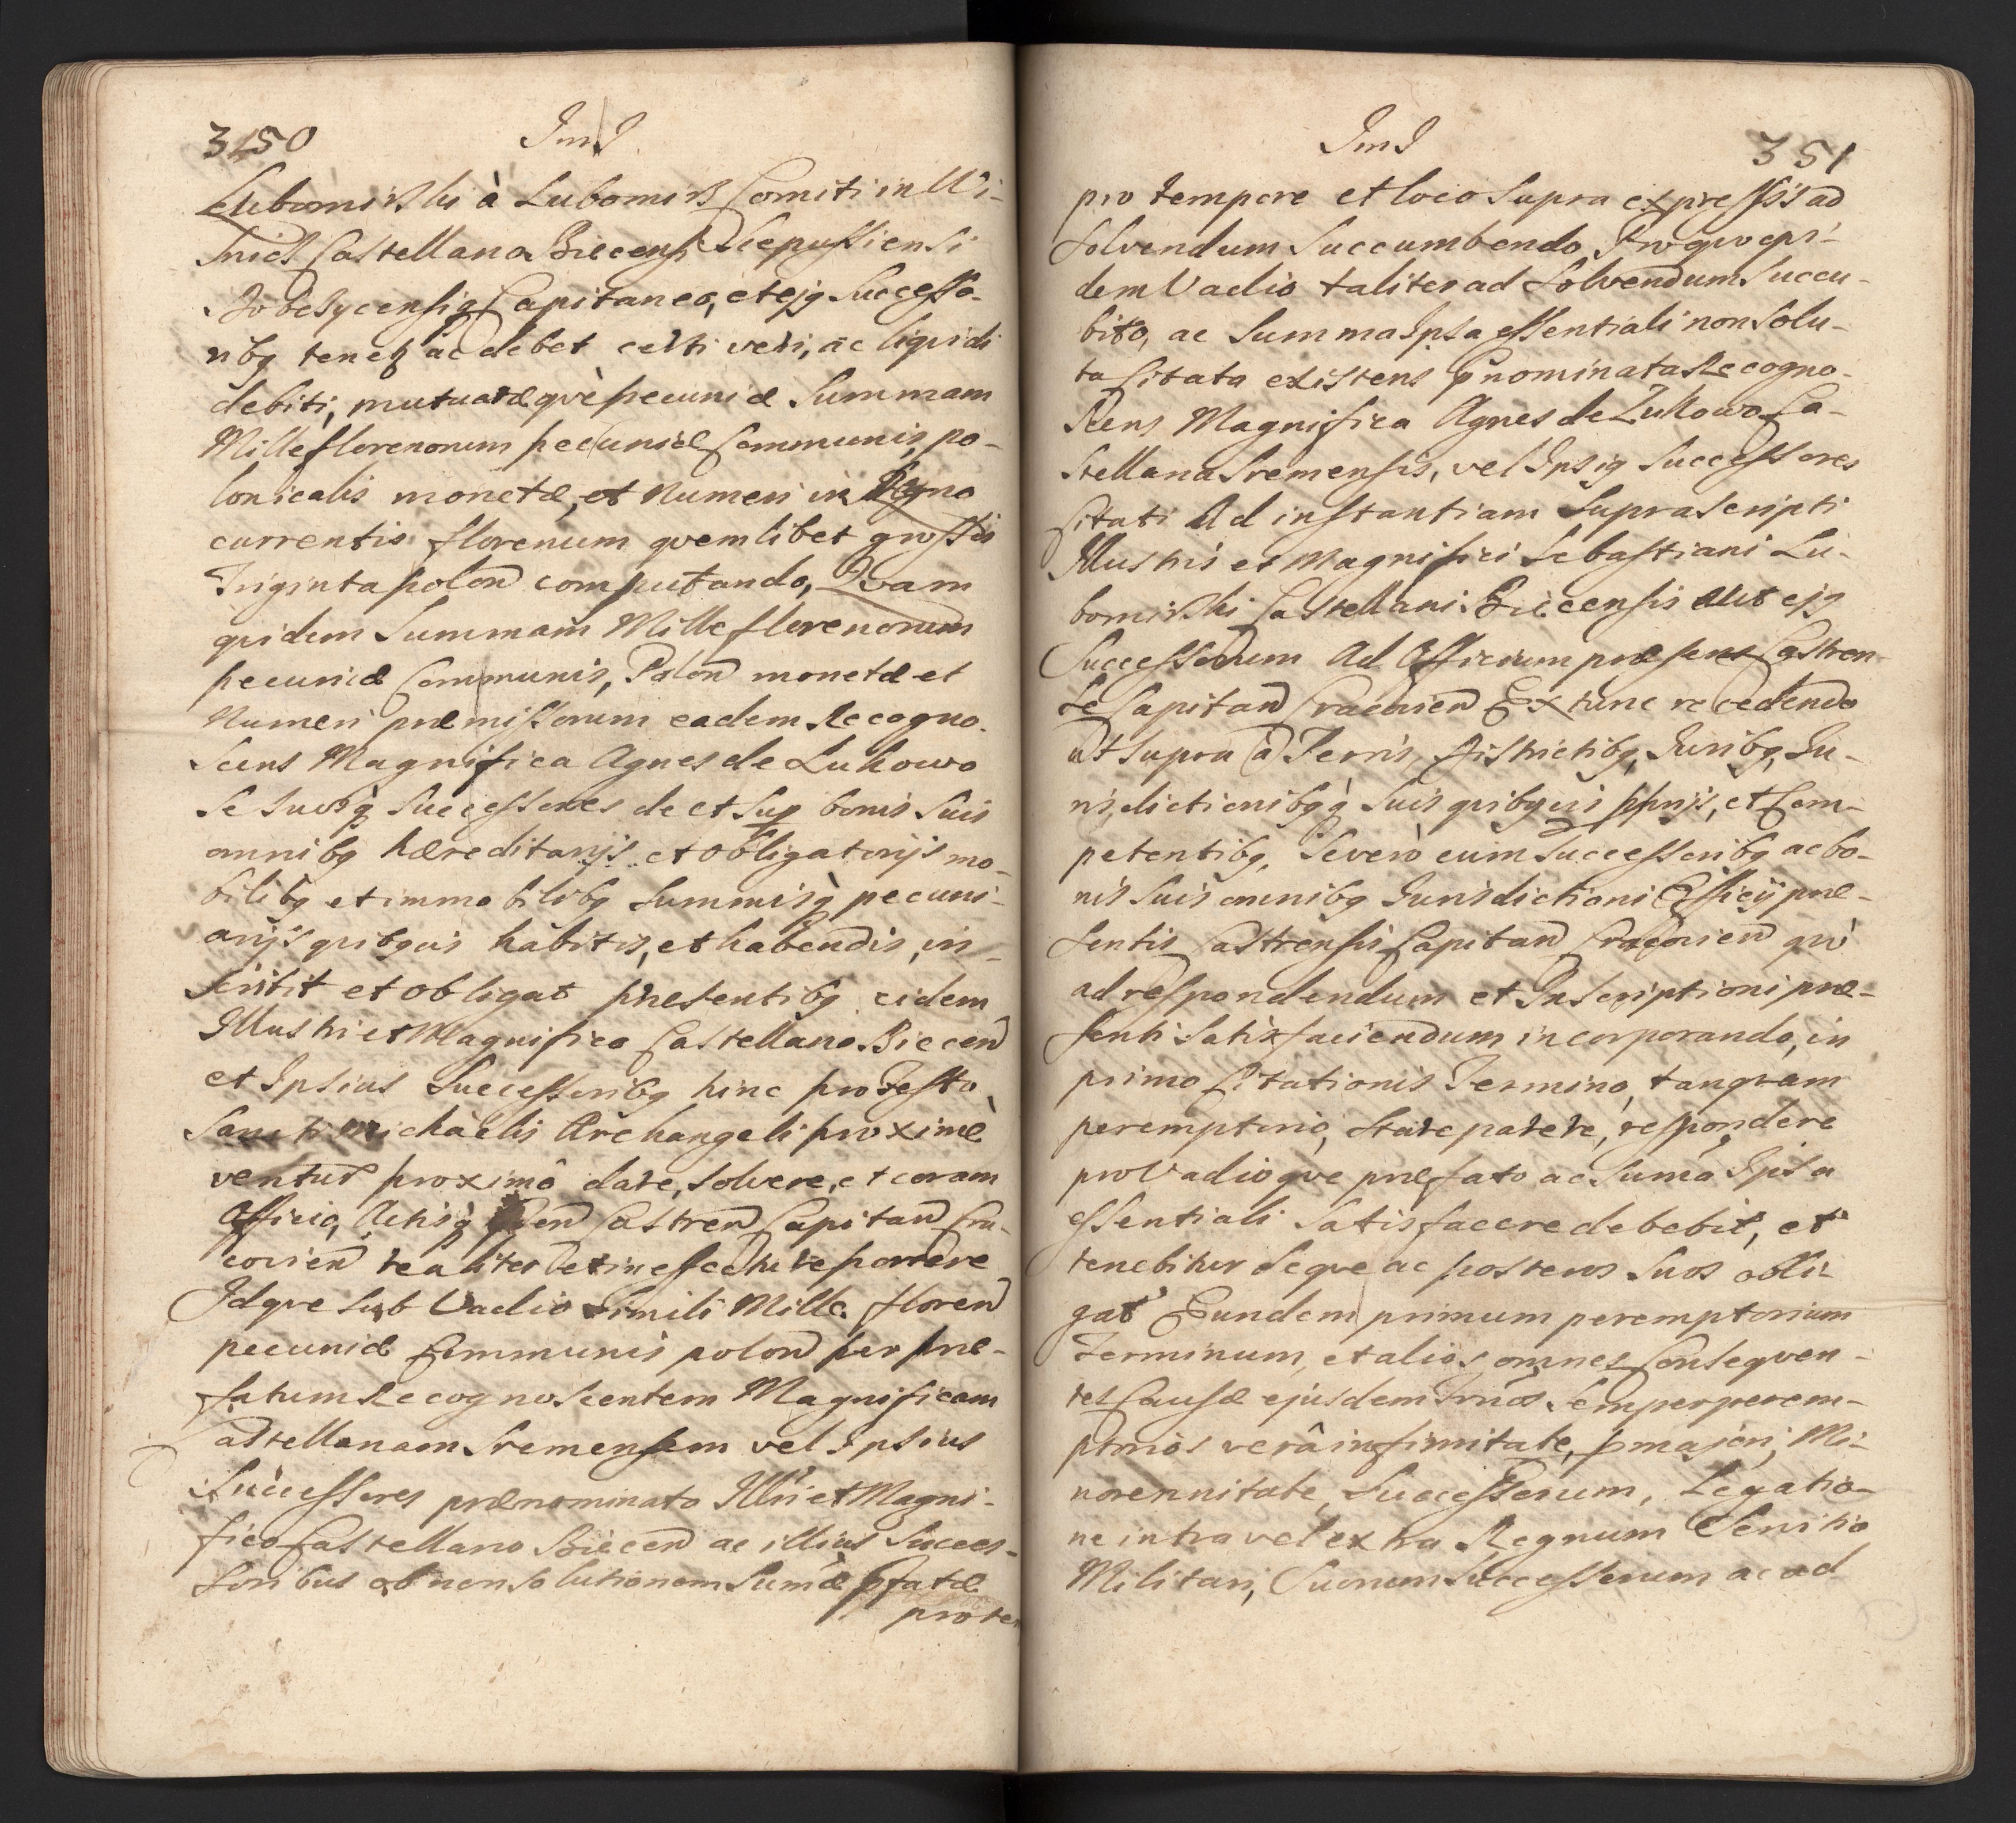 3150 ImI
Lubomirski à Lubomirz Comiti in Wi-
snicz Castellano Biecensi Scepussiensi
Dobcsycensiq Capitaneo, et ejq Successo-
ribq tenetq ac debet certi veri, ac liqvidi
debiti, mutuatæ qvè pecuniæ Summam
Mille florenorum pecuniæ Communis, po-
lonicalis monetæ, et Numeri in Regno
currentis florenum qvemlibet grossis
Triginta polon computando, Qvam
qvidem Summam Mille florenorum
pecuniæ Communis, Polon monetæ et
Numeri præmissorum eadem Recogno-
scens Magnifica Agnes de Lukowo
Se Suosq Successores de et Sup bonis Suis
omnibq hæreditarijs et obligatorijs mo-
bilibq et immobilibq Summisq pecuni-
arijs qvibqvis habitis, et habendis, in-
scribit et obligat præsentibq eidem
Illustri et Magnifico Castellano Biecen
et Ipsius Successoribq hinc pro Festo
Sancti Michaelis Archangeli proximè
ventur proximô dare, Solvere, et coram
Officio, Actisq Castren Capitan Cra-
covien realiter et in effectu reponere
Idqve Sub Vadio Simili Mille floren
pecuniæ Communis polon per præ-
fatum Recognoscentem Magnificam
Castellanam Sremensem vel Ipsius
Successores prænominato Illri et Magni-
fico Castellano Biecen ac illius Succes-
soribus ob non Solutionem Sumæ pfatæ
pro tem
ImI 351
pro tempore et loco Supra expressis ad
Solvendum Succumbendo, Pro qvo eqvi-
dem Vadio taliter ad Solvendum Succu-
bito, ac Summa Ipsa essentiali non Solu-
ta Citata existens pnominata Recogno-
scens Magnifica Agnes de Lukowo Ca-
stellana Sremensis, vel Ipsiq Successores
Citati Ad instantiam Suprascripti
Illustris et Magnifici Sebastiani Lu-
bomirski Castellani Biecensis aut ejq
Successorum Ad Officium præsens Castren-
se Capitan Cracovien Ex tunc recedendo
ut Supra à Terris, Districtibq, Juribq, Ju-
risdictionibqq Suis qvibqvis pprijs, et Com-
petentibq, Se verò cum Successoribq ac bo-
nis Suis omnibq Jurisdictioni Officij præ-
sentis Castrensis Capitan Cracovien qvò
ad respondendum et Inscriptioni præ-
senti Satisfaciendum incorporando, in
primo Citationis Termino, tanqvam
peremptorio, Stare parere, respondere
pro Vadioqve præfato ac Suma Ipsa
essentiali Satisfacere debebit, et
tenebitur Seqve ac posteros Suos obli-
gat Eundem primum peremptorium
Terminum, et alios omnes Conseqven-
tes Causæ ejusdem trnos Semper perem-
ptorios verâ infirmitate, pmajori, Mi-
norennitate, Successorum, Legatio-
ne intra vel extra Regnum Servitio
Militari, Suorum Successorum ac ad